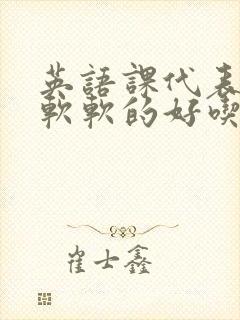 英語課代表
軟軟的好喫
崔士鑫